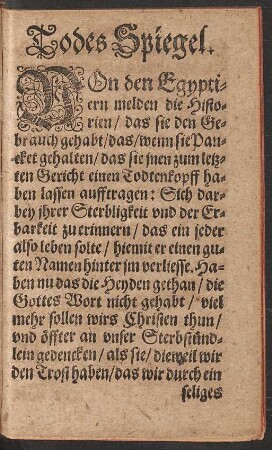 Todes Spiegel.
VOn den Egypti-
ern melden die Histo-
rien / das sie den Ge-
brauch gehabt / das / wenn sie Pan-
cket gehalten / das sie jnen zum letz-
ten Gericht einen Todtenkopff ha-
ben lassen aufftragen: Sich dar-
bey jhrer Sterbligkeit vnd der Er-
barkeit zu erinnern / das ein jeder
also leben solte / hiemit er einen gu-
ten Namen hinter jm verliesse. Ha-
ben nu das die Heyden gethan / die
Gottes Wort nicht gehabt / viel
mehr sollen wirs Christen thun /
vnd öffter an vnser Sterbstünd-
lein gedencken / als sie / dieweil wir
den Trost haben / das wir durch ein
seliges